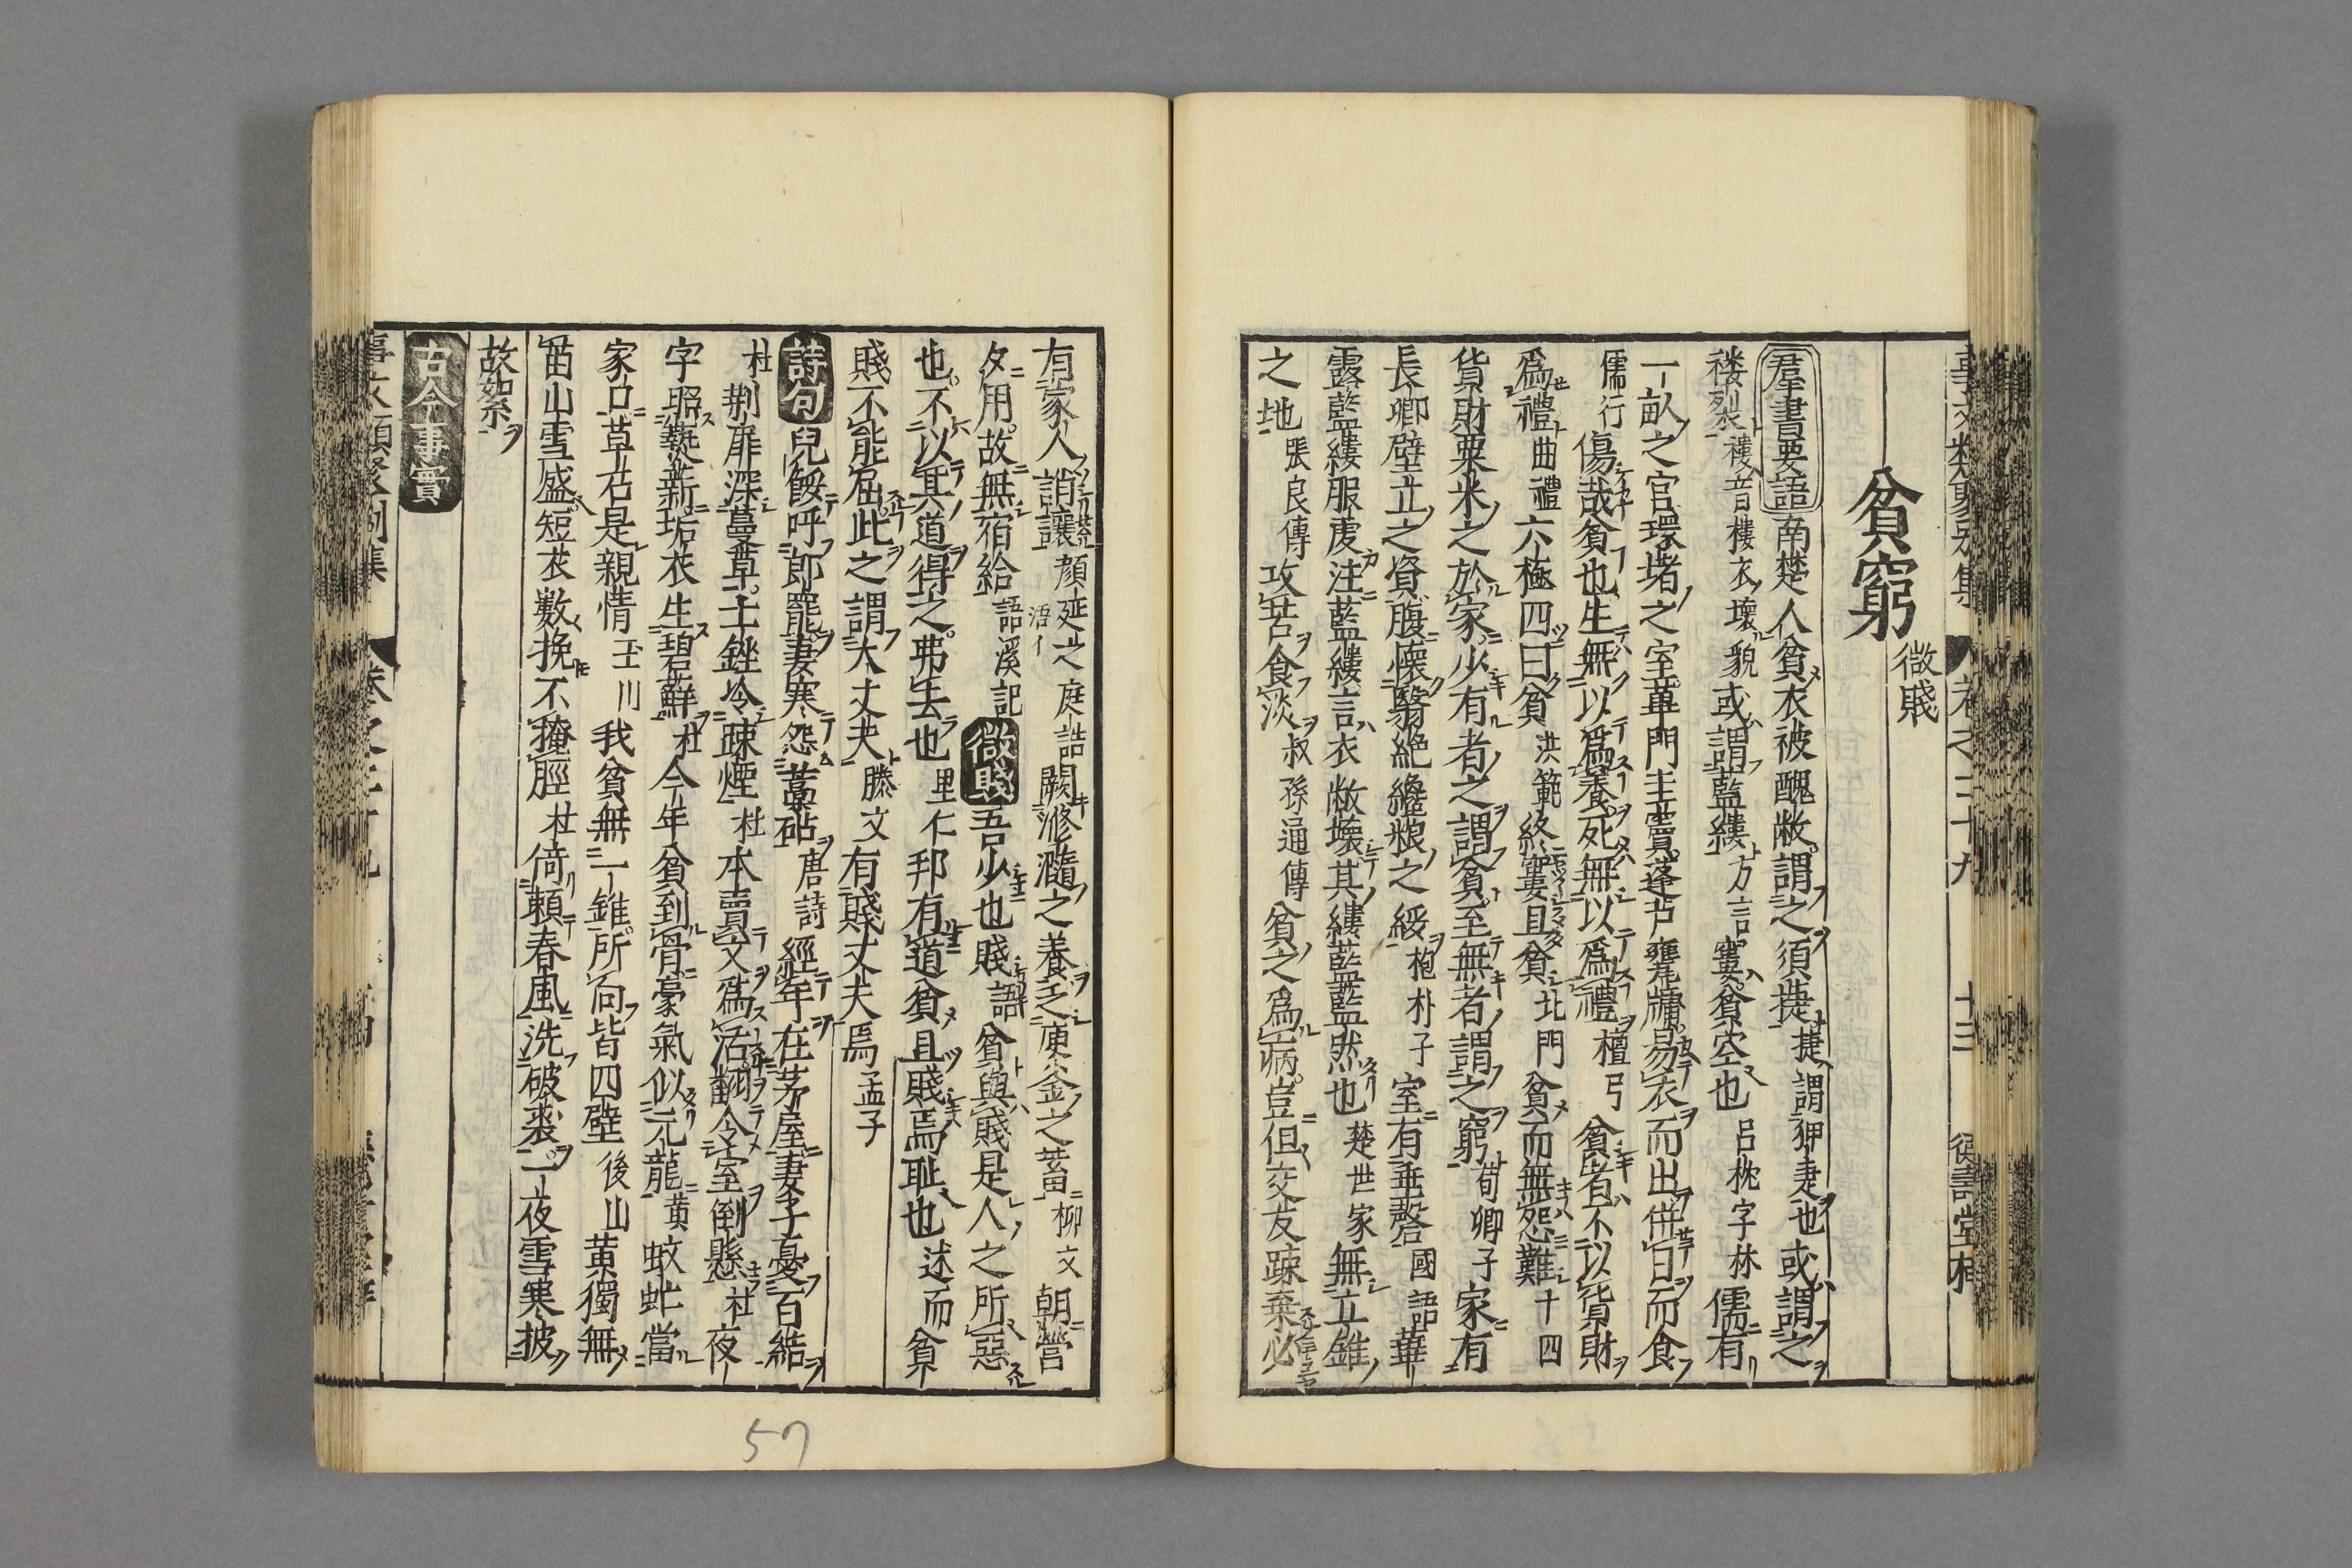 貧窮 微賤
羣書要語 南楚人貧衣被醜敝謂之須捷 捷謂狎疌也 或謂之
褸裂 褸音樓衣壞貌 或謂藍縷 方言 窶貧空也 呂忱字林 儒有
一畝之宮環堵之室蓽門圭竇蓬戸甕牖易衣而出併日而食
儒行 傷哉貧也生無以爲養死無以爲禮 檀弓 貧者不以貨財
爲禮 曲禮 六極四曰貧 洪範 終窶且貧 北門 貧而無怨難 十四
貨財粟米之於家少有者之謂貧至無者謂之窮 荀卿子 家有
長卿壁立之資腹懷翳絶纔粮之緩 抱朴子 室有垂磬 國語 蓽
露藍縷服虔注藍縷言衣敝壞其縷藍藍然也 楚世家 無立錐
之地 張良傳 攻苦食淡 叔孫通傳 貧之爲病豈但交友疎棄必
有家人誚讓 顏延之庭誥 闕滫瀡之養乏庾釜之蓄 柳文 朝營
夕用故無宿給 語溪記 浯イ 微賤 吾少也賤 語 貧與賤是人之所惡
也不以其道得之弗去也 里仁 邦有道貧且賤焉恥也 述而 貧
賤不能屈此之謂大丈夫 滕文 有賤丈夫焉 孟子
詩句 兒餒呼郎罷妻寒怨藁砧 唐詩 經年在茅屋妻子憂百結
杜 荆扉深蔓草土銼冷疎煙 杜 本賣文爲活翻令室倒懸 杜 夜
字照爇薪垢衣生碧蘚 杜 今年貧到骨豪氣似元龍 黄 蚊虻當
家口草石是親情 玉川 我貧無一錐所向皆四壁 後山 黄獨無
苗山雪盛短衣數挽不掩脛 杜 倚賴春風洗破裘一夜雪寒披
故絮
古今事實
57